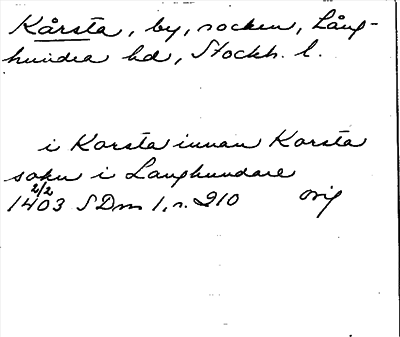 Kårsta, by, socken, Lång-
hundra hd, Stockh. l.
i Karsta innan Karsta
sokn i Langhundare
2/2
1403 SDns 1, n. 210 orig